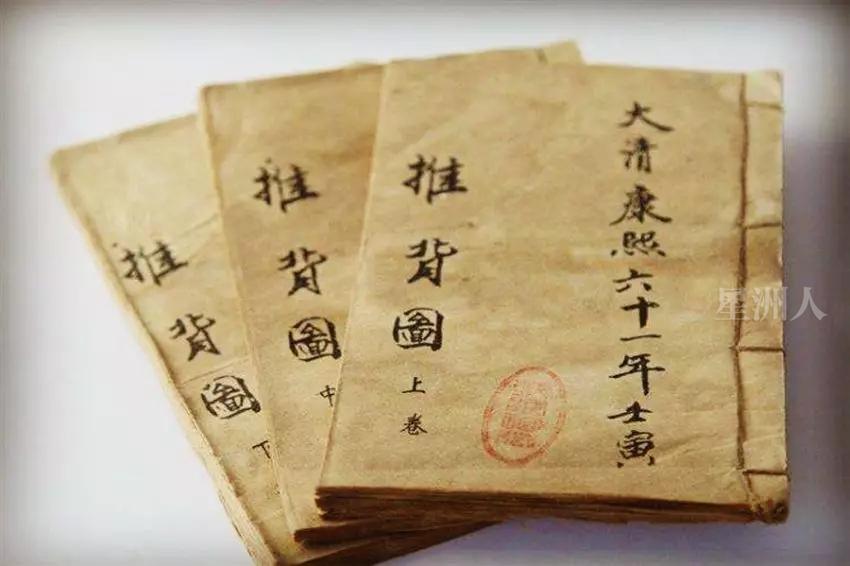 大清康熙六十一年壬寅
推背圖
上卷
推背圖
中
推背圖
下
星洲人